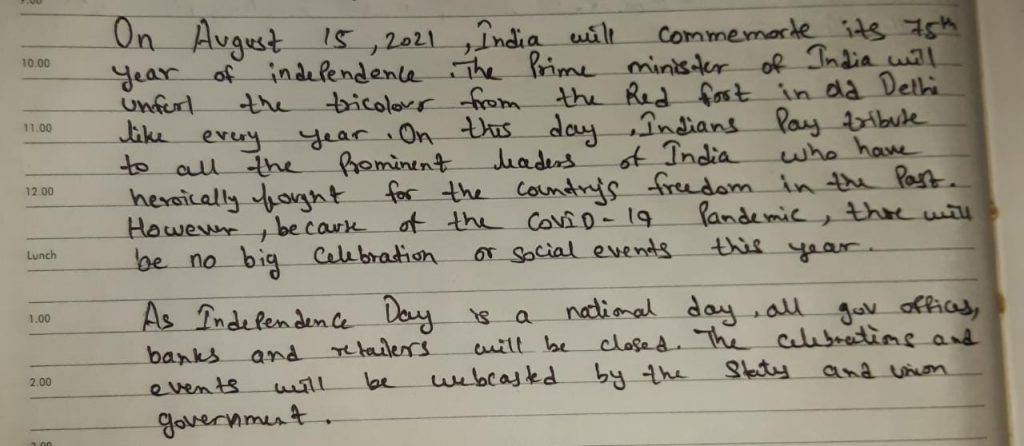 On August 15, 2021, India will commemorte its 75th
10.00 year of independence. The Prime minister of India will
unfurl the tricolour from the Red fort in old Delhi
11.00 like every year. On this day, Indians Pay tribute
to all the Prominent leaders of India who have
12.00 heroically fought for the country's freedom in the Past.
However, because of the COVID-19 Pandemic, there will
Lunch be no big Celebration or social events this year.
1.00 As Independence Day is a national day, all gov offices,
banks and retailers will be closed. The celebrations and
2.00 events will be webcasted by the States and union
government.